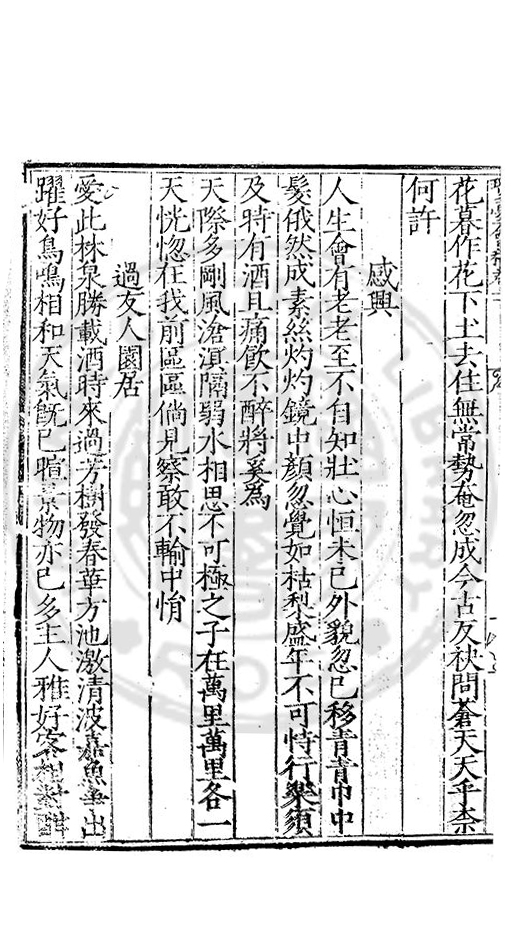 花暮作花下土去住無常勢奄忽成今古反袂問蒼天天乎柰
何許
感興
人生會有老老至不自知壯心恒未已外貌忽已移青青巾中
髮俄然成素絲灼灼鏡中顏忽覺如枯棃盛年不可恃行樂須
及時有酒且痛飲不醉將奚爲
天際多剛風滄溟隔弱水相思不可極之子在萬里萬里各一
天恍惚在我前區區倘見察敢不輸中悁
過友人園居
愛此林泉勝載酒時來過芳樹發春華方池激清波嘉魚爭出
躍好鳥鳴相和天氣旣已暄景物亦已多主人雅好客相對